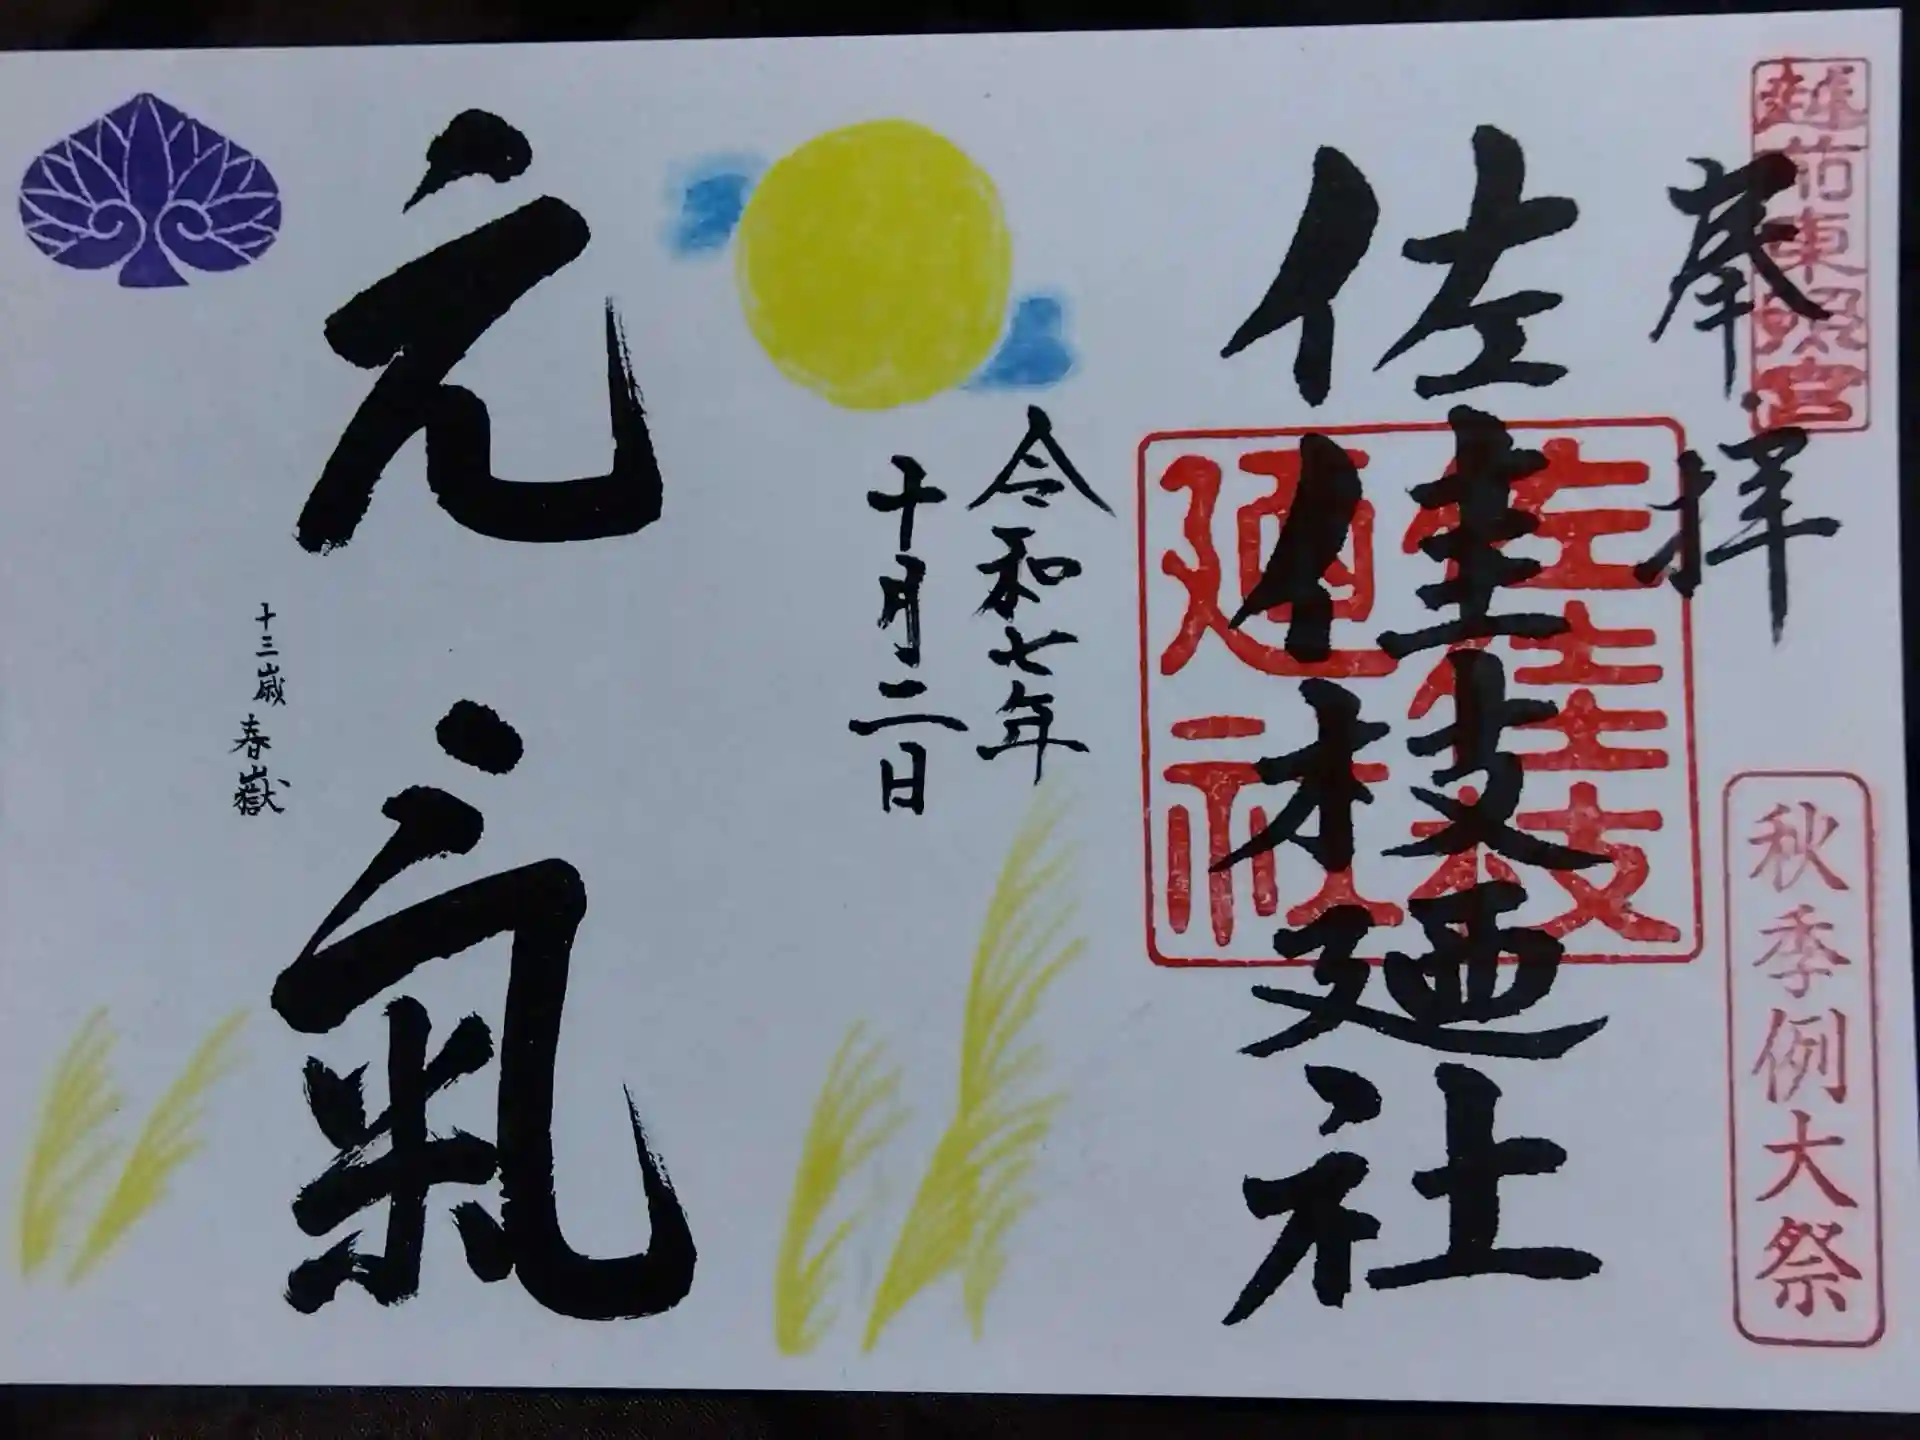 越前東照宮
奉拝
秋季例大祭
佐佳枝廼社
佐佳枝
廼社
令和七年
十月二日
元氣
十三歳 春嶽